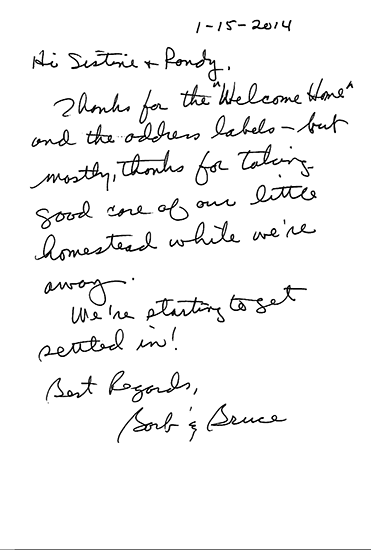 1-15-2014
Hi Sistine + Randy,
Thanks for the "Welcome Home"
and the address labels - but
mostly, thanks for taking
good care of our little
homestead while we're
away.
We're starting to get
settled in!
Best Regards,
Barb & Bruce